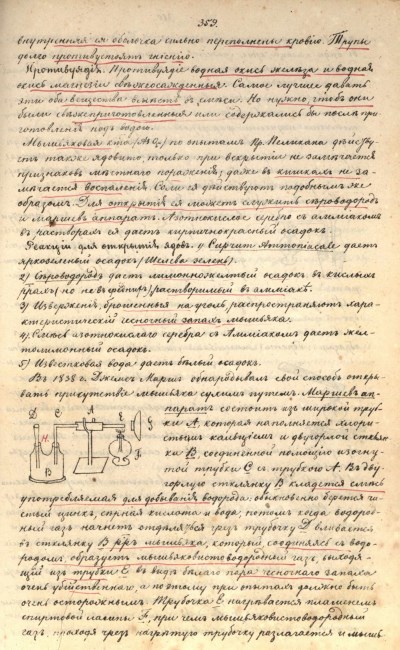 359.
внутренняя ея оболочка сильно переполнены кровію. Трупы
долго противустоятъ гніенію.
Противуядія. Противуядіе водная окись желѣза и водная
окись магнезіи свѣжеосажденныя. Самое лучшее давать
эти оба вещества вмѣстѣ въ смѣси. Но нужно, чтобъ они
были свѣжеприготовленныя или содержались бы послѣ при-
готовленія подъ водою.
Мышьяковая кта (As O5) по опытамъ Пр. Пеликана дѣйству-
етъ также ядовито, только при вскрытіи не замѣчается
признаковъ мѣстнаго пораженія; даже въ кишкахъ не за-
мѣчается воспаленія. Соли ея дѣйствуютъ подобнымъ же
образомъ. Для открытія ея можетъ служить сѣроводородъ
и Маршевъ аппаратъ. Азотнокислое серебро съ амміакомъ
въ растворахъ ея даетъ кирпичнокрасный осадокъ.
Реакціи для открытія ядовъ. 1) Cuprum Ammoniacale даетъ
яркозеленый осадокъ (Шелева зелень).
2) Сѣроводородъ даетъ лимонножелтый осадокъ въ кислыхъ
растворимый въ амміакѣ.
3) Изверженія, брошенныя на уголь, распространяютъ хара-
ктеристическій чесночный запахъ мышьяка.
4) Смѣсь азотнокислаго серебра съ Амміакомъ даетъ жел-
толимонный осадокъ.
5) Известковая вода даетъ бѣлый осадокъ.
Въ 1838 г. Джемсъ Маршъ обнародывалъ свой способъ откры-
вать присутствіе мышьяка сухимъ путемъ. Маршевъ ап-
паратъ состоитъ изъ широкой труб-
ки А, которая наполняется хлори-
стымъ кальціемъ и двугорлой стклян-
ки В, соединенной помощію изогну-
той трубки С съ трубкою А. Въ дву-
горлую стклянку В кладется смѣсь
D C A E G
H
B F
употребляемая для добыванія водорода: обыкновенно берется чи-
стый цинкъ, сѣрная кислота и вода, потомъ когда водород-
ный газъ начнетъ отдѣляться чрезъ трубочку D вливается
въ стклянку В р-ръ мышьяка, который, соединяясь съ водо-
родомъ, образуетъ мышьяковистоводородный газъ, выходя-
щій изъ трубки Е въ видѣ бѣлаго пара чесночнаго запаха
очень убійственнаго, а поэтому при опытахъ должно быть
очень осторожнымъ. Трубочка Е нагрѣвается пламенемъ
спиртовой лампы F, при чемъ мышьяковистоводородный
газъ, проходя чрезъ нагрѣтую трубочку разлагается и мышь